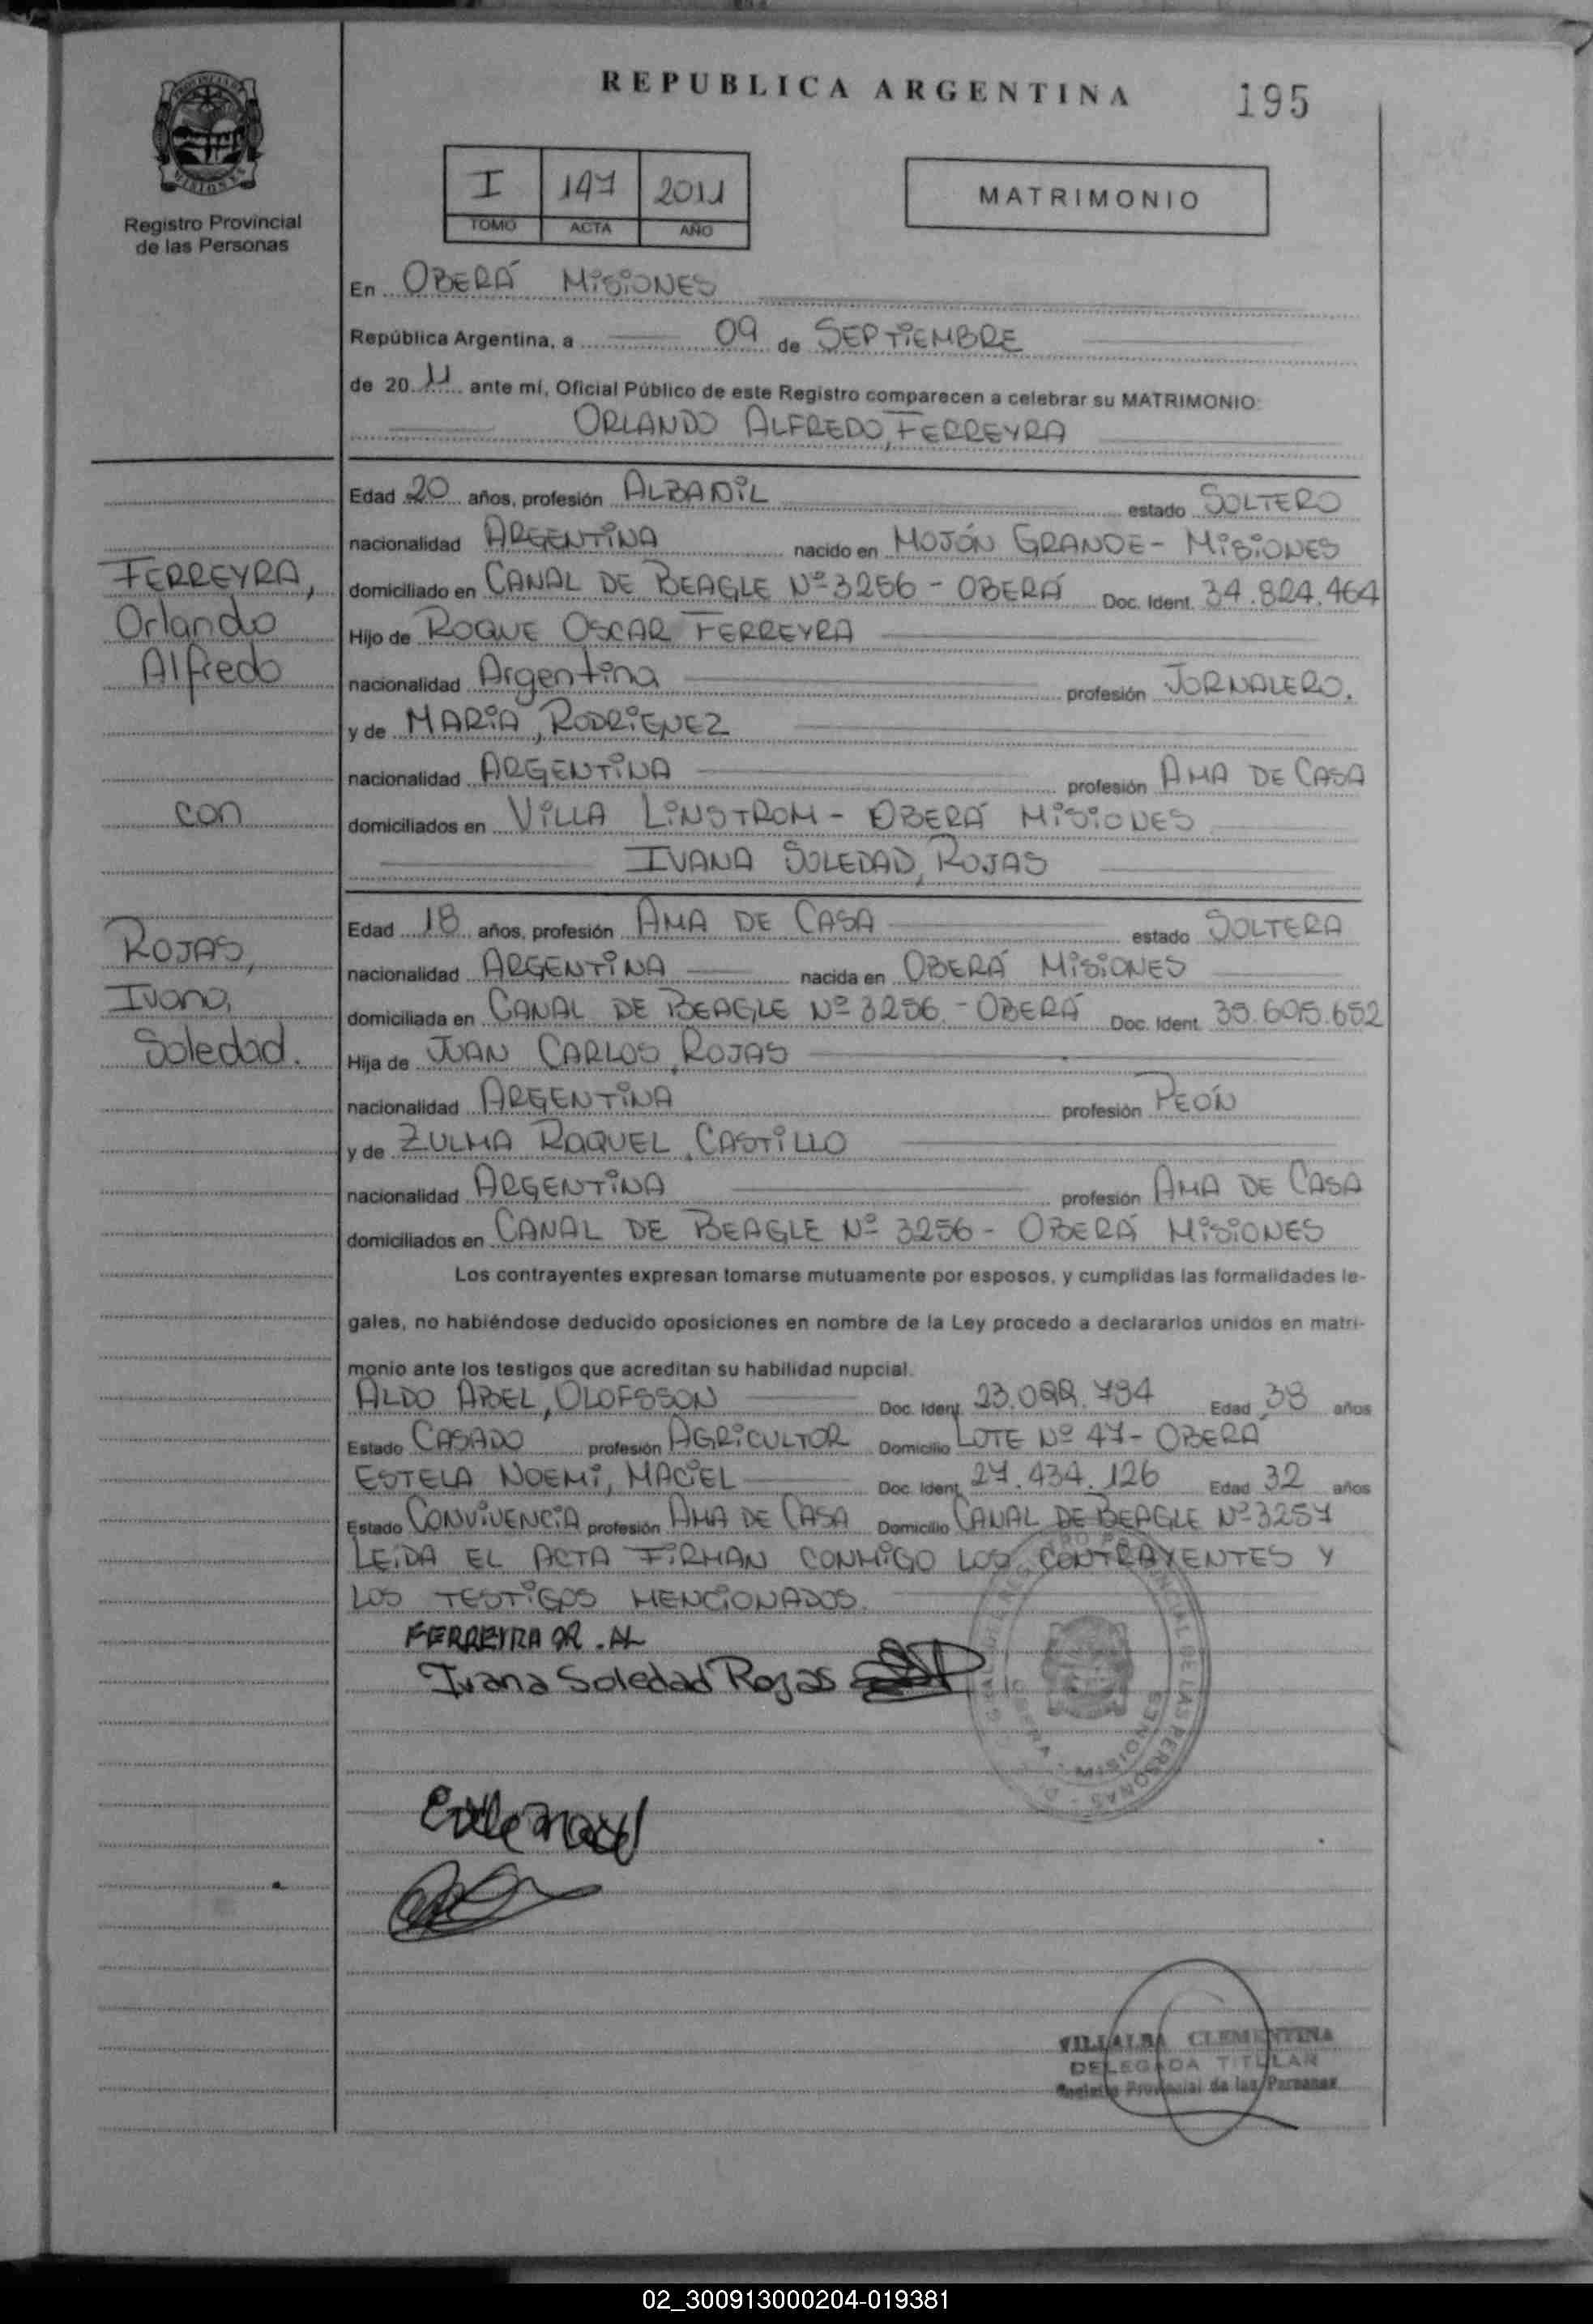 REPUBLICA ARGENTINA
195
PROVINCIA DE
MISIONES
Registro Provincial
de las Personas
I 147 2011
TOMO ACTA AÑO
MATRIMONIO
En OBERÁ MISIONES
República Argentina, a 09 de SEPTIEMBRE
de 2011 ante mí, Oficial Público de este Registro comparecen a celebrar su MATRIMONIO:
ORLANDO ALFREDO, FERREYRA
FERREYRA,
Orlando
Alfredo
con
ROJAS,
Ivana,
Soledad.
Edad 20 años, profesión ALBAÑIL estado SOLTERO
nacionalidad ARGENTINA nacido en MOJÓN GRANDE - MISIONES
domiciliado en CANAL DE BEAGLE Nº 3256 - OBERÁ Doc. Ident. 34.824.464
Hijo de ROQUE OSCAR FERREYRA
nacionalidad Argentina profesión JORNALERO.
y de MARIA, RODRIGUEZ
nacionalidad ARGENTINA profesión AMA DE CASA
domiciliados en VILLA LINSTROM - OBERÁ MISIONES
IVANA SOLEDAD, ROJAS
Edad 18 años, profesión AMA DE CASA estado SOLTERA
nacionalidad ARGENTINA nacida en OBERÁ MISIONES
domiciliada en CANAL DE BEAGLE Nº 3256 - OBERÁ Doc. Ident.
Hija de JUAN CARLOS, ROJAS
nacionalidad ARGENTINA profesión PEÓN
y de ZULMA RAQUEL, CASTILLO
nacionalidad ARGENTINA profesión AMA DE CASA
domiciliados en CANAL DE BEAGLE Nº 3256 - OBERÁ MISIONES
Los contrayentes expresan tomarse mutuamente por esposos, y cumplidas las formalidades le-
gales, no habiéndose deducido oposiciones en nombre de la Ley procedo a declararlos unidos en matri-
monio ante los testigos que acreditan su habilidad nupcial.
ALDO ABEL, OLOFSSON Doc. Ident. Edad 38 años
Estado CASADO profesión AGRICULTOR Domicilio LOTE Nº 47 - OBERÁ
ESTELA NOEMI, MACIEL Doc. Ident. 27.434.126 Edad 32 años
Estado CONVIVENCIA profesión AMA DE CASA Domicilio CANAL DE BEAGLE Nº 3257
LEIDA EL ACTA FIRMAN CONMIGO LOS CONTRAYENTES Y
LOS TESTIGOS MENCIONADOS.
FERREYRA OR. AL
Ivana Soledad Rojas
VILLALBA CLEMENTINA
DELEGADA TITULAR
Registro Provincial de las Personas
02_300913000204-019381